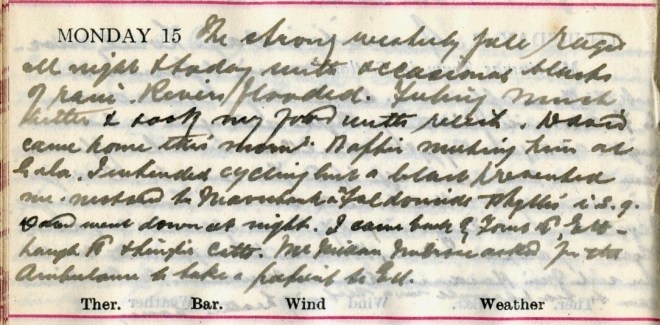 MONDAY 15 The strong westerly gale raged
all night & today with occasional blasts
of rain. Rivers flooded. Feeling much
better & took my food with relish. David
came home this morn. Baffie meeting him at
Gala. I intended cycling but a blast prevented
me. motored to & Faldonside Phyllis i.S.g.
David went down at night. I came back
& Cotts. asked for the
Ambulance to take a patient to Ed.
Ther. Bar. Wind Weather